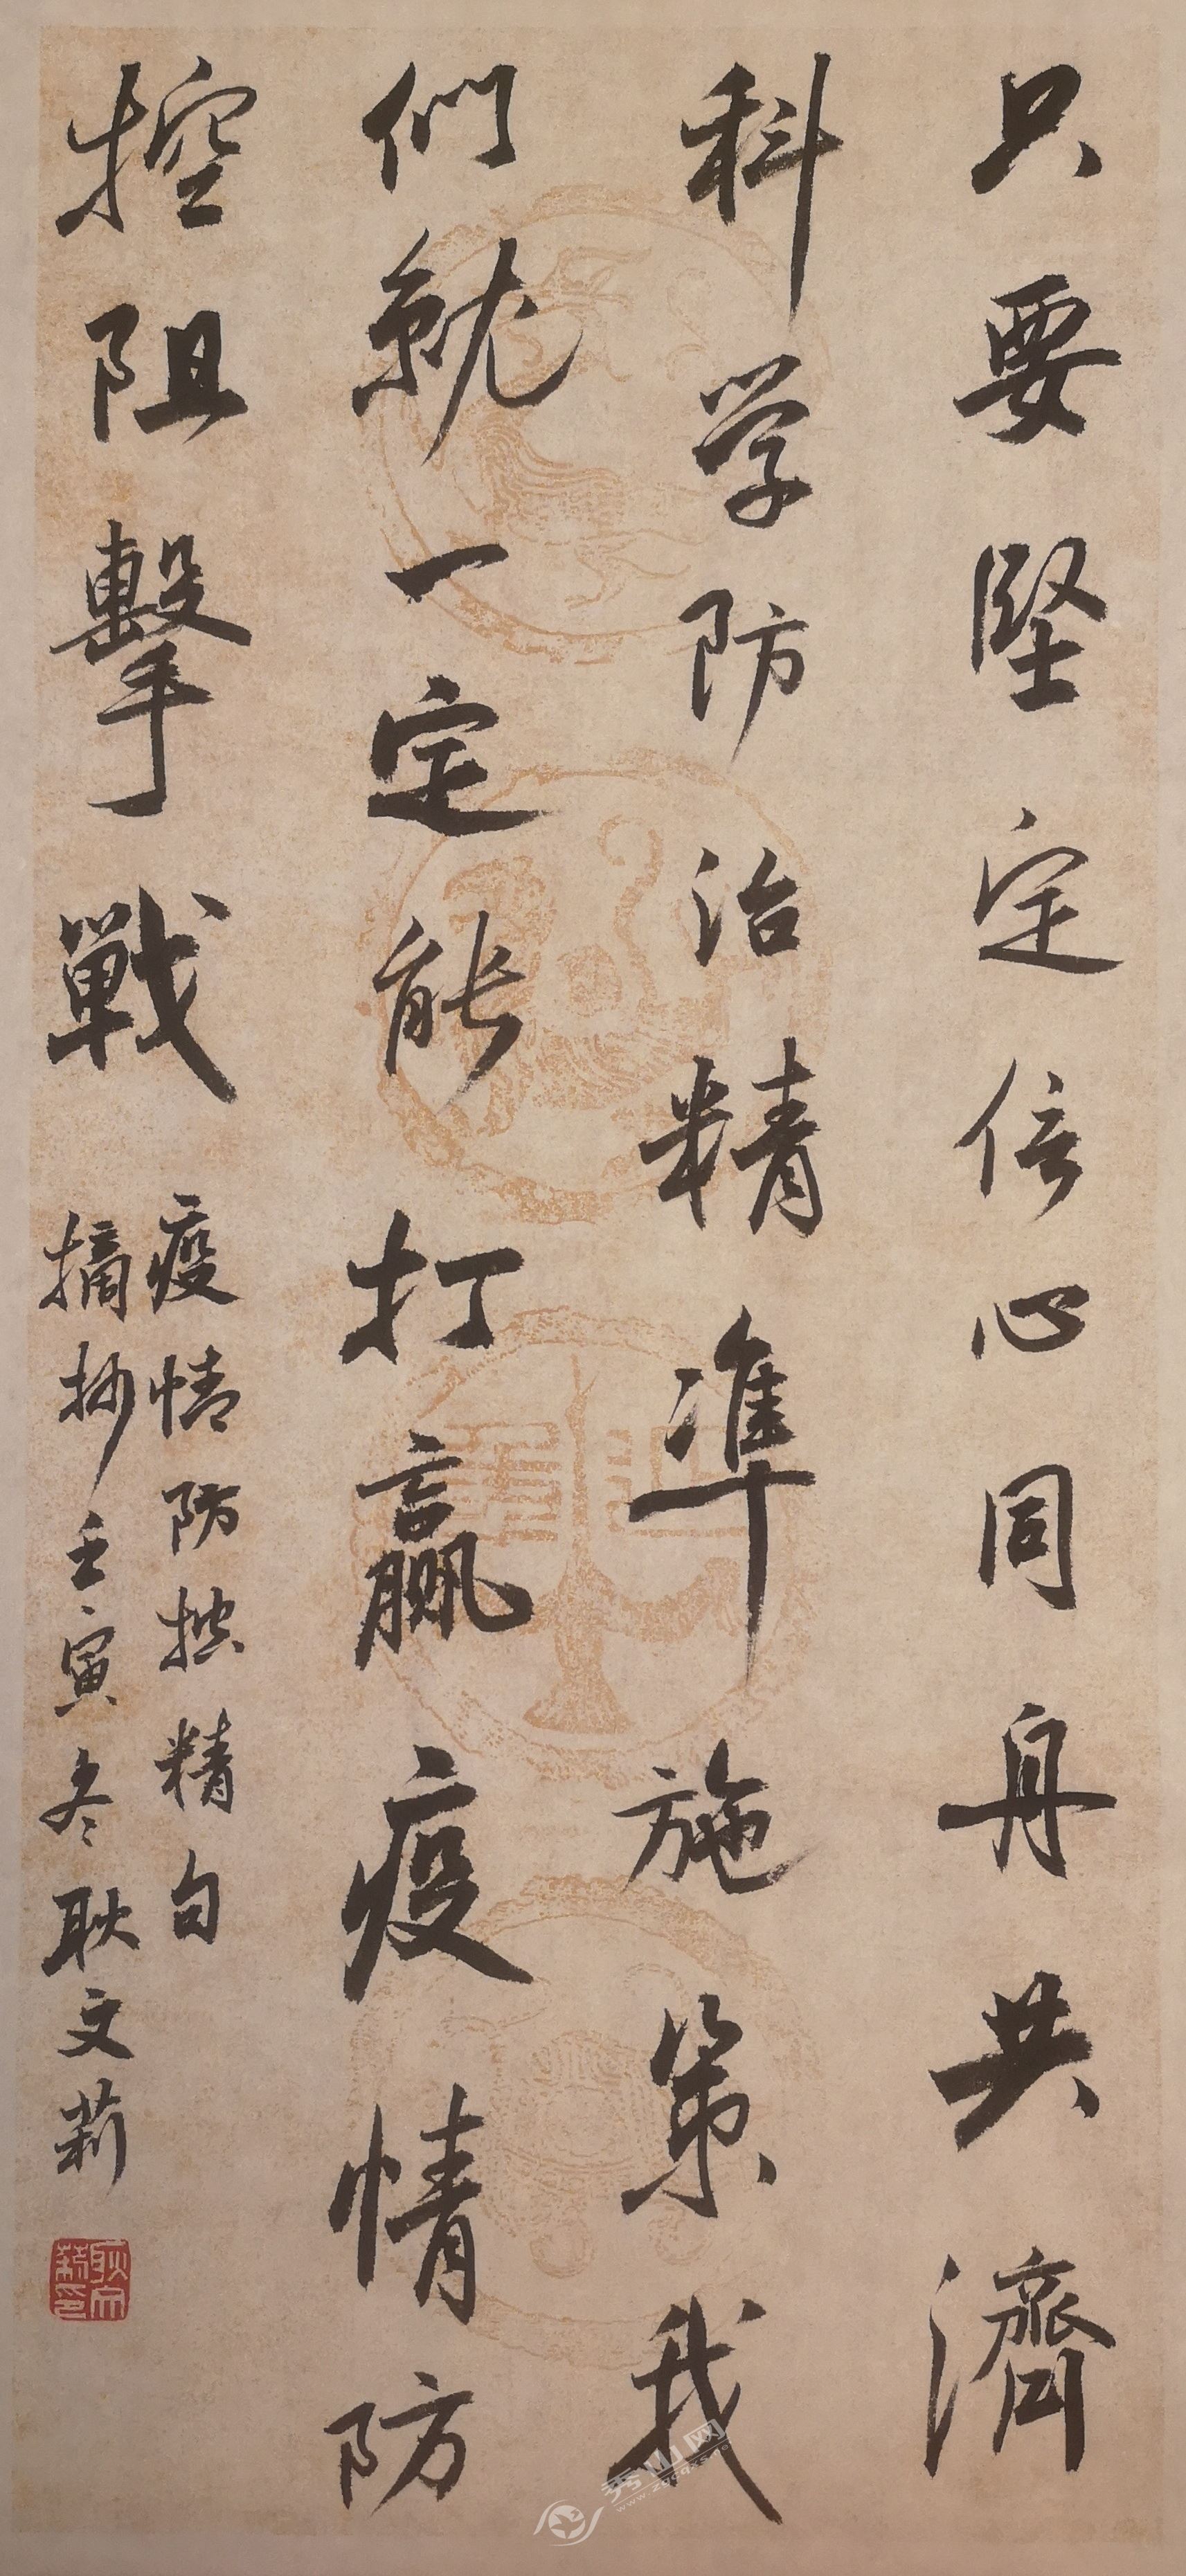 只要堅定信心同舟共濟
科学防治精準施策我
們就一定能打贏疫情防
控阻擊戰
疫情防控精句
摘抄壬寅冬耿文莉
耿文莉印
秀山网
www.zgcqxs.net